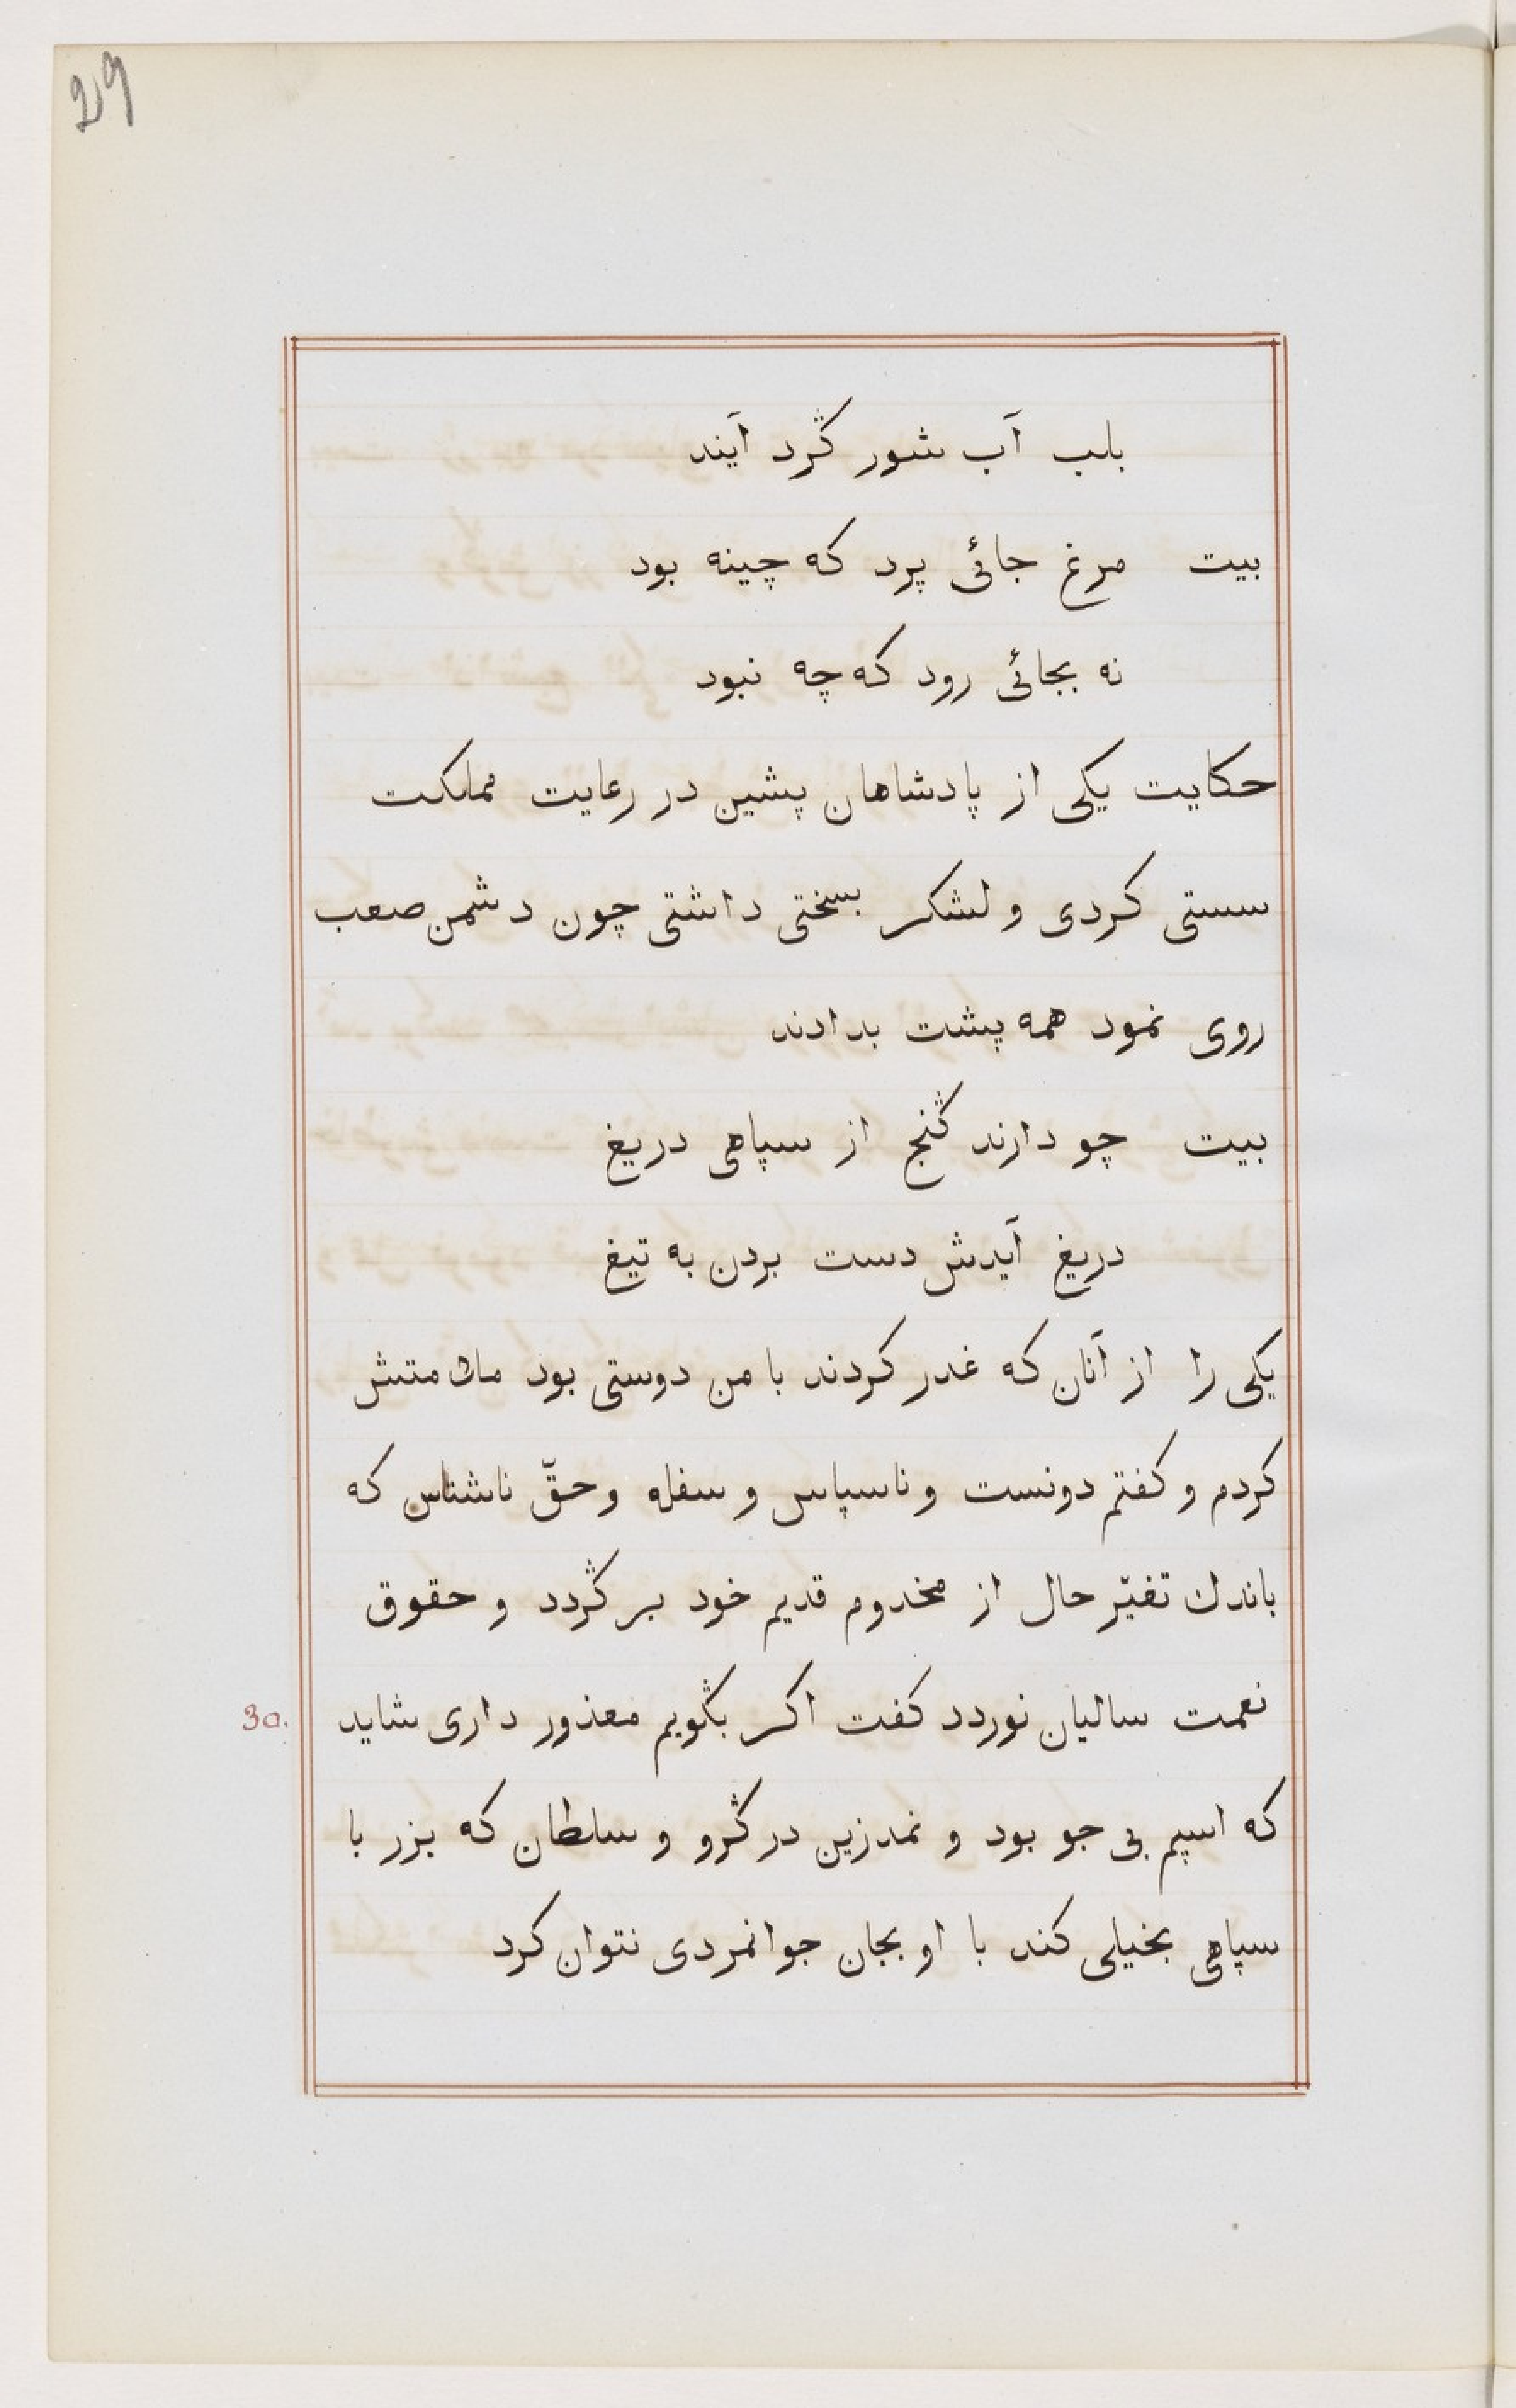 29
بلب آب شور گرد آیند
بیت مرغ جائی پرد که چینه بود
نه بجائی رود که چه نبود
حکایت یکی از پادشاهان پیشین در رعایت مملکت
سستی کردی و لشکر بسختی داشتی چون دشمن صعب
روی نمود همه پشت بدادند
بیت چو دارند گنج از سپاهی دریغ
دریغ آیدش دست بردن به تیغ
یکی را از آنان که غدر کردند با من دوستی بود ملامتش
کردم و کفتم دونست و ناسپاس و سفله و حقّ ناشناس که
باندك تغیّر حال از مخدوم قدیم خود بر گردد و حقوق
نعمت سالیان نوردد کفت اکر بگویم معذور داری شاید
30.
که اسپم بی جو بود و نمدزین در گرو و سلطان که بزر با
سپاهی بخیلی کند با او بجان جوانمردی نتوان کرد